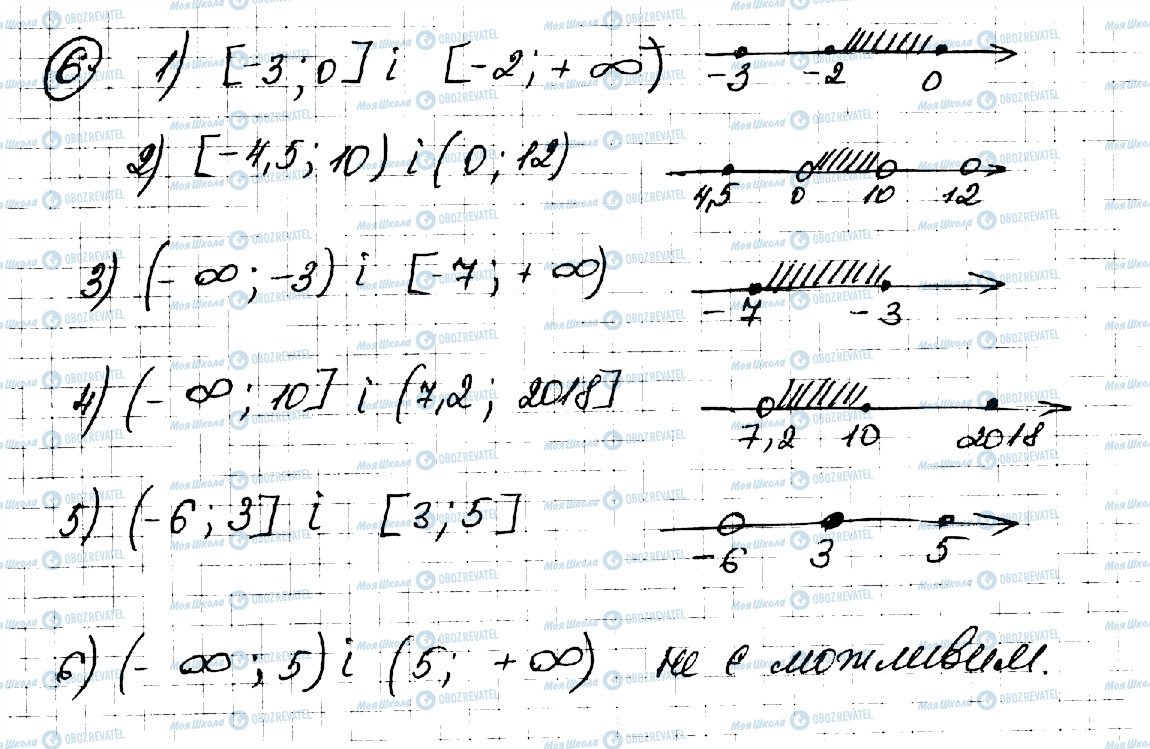 6) 1) [-3; 0] і [-2; + ∞)
-3 -2 0
2) [-4,5; 10) і (0; 12)
4,5 0 10 12
3) (- ∞; -3) і [-7; + ∞)
-7 -3
4) (- ∞; 10] і (7,2; 2018]
7,2 10 2018
5) (-6; 3] і [3; 5]
-6 3 5
6) (- ∞; 5) і (5; + ∞) не є можливим.
МояШкола OBOZREVATEL